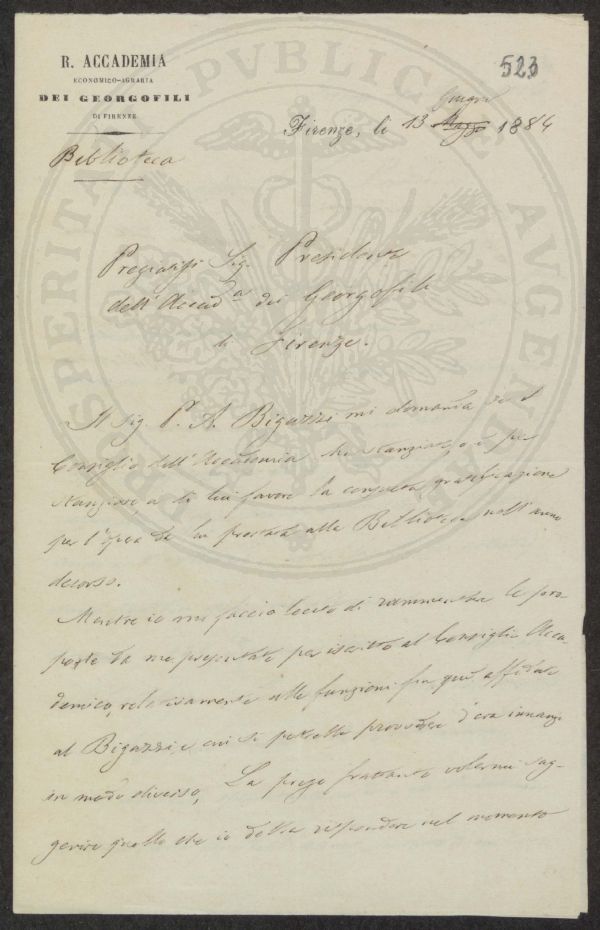 R. ACCADEMIA
ECONOMICO-AGRARIA
DEI GEORGOFILI
DI FIRENZE
523
Giugno
Firenze, li 13 Maggio 1884
Biblioteca
PROSPERITATI PVBLICAE AVGENDAE
Sig. Presidente
dell'Accad.a dei Georgofili
di Firenze.
Il sig. P. A. Bigazzi mi domanda se il
Consiglio dell'Accademia ha stanziato, o è per
stanziare a di lui favore la consueta gratificazione
per l'opera da lui prestata alla Biblioteca nell'anno
decorso.
Mentre io mi faccio lecito di rammentare le pro-
poste da me presentate per iscritto al Consiglio Acca-
demico, relativamente alle funzioni fin qui affidate
al Bigazzi, e cui si potrebbe provvedere d'ora innanzi
in modo diverso, La prego frattanto volermi sug-
gerire quello che io debba rispondere nel momento